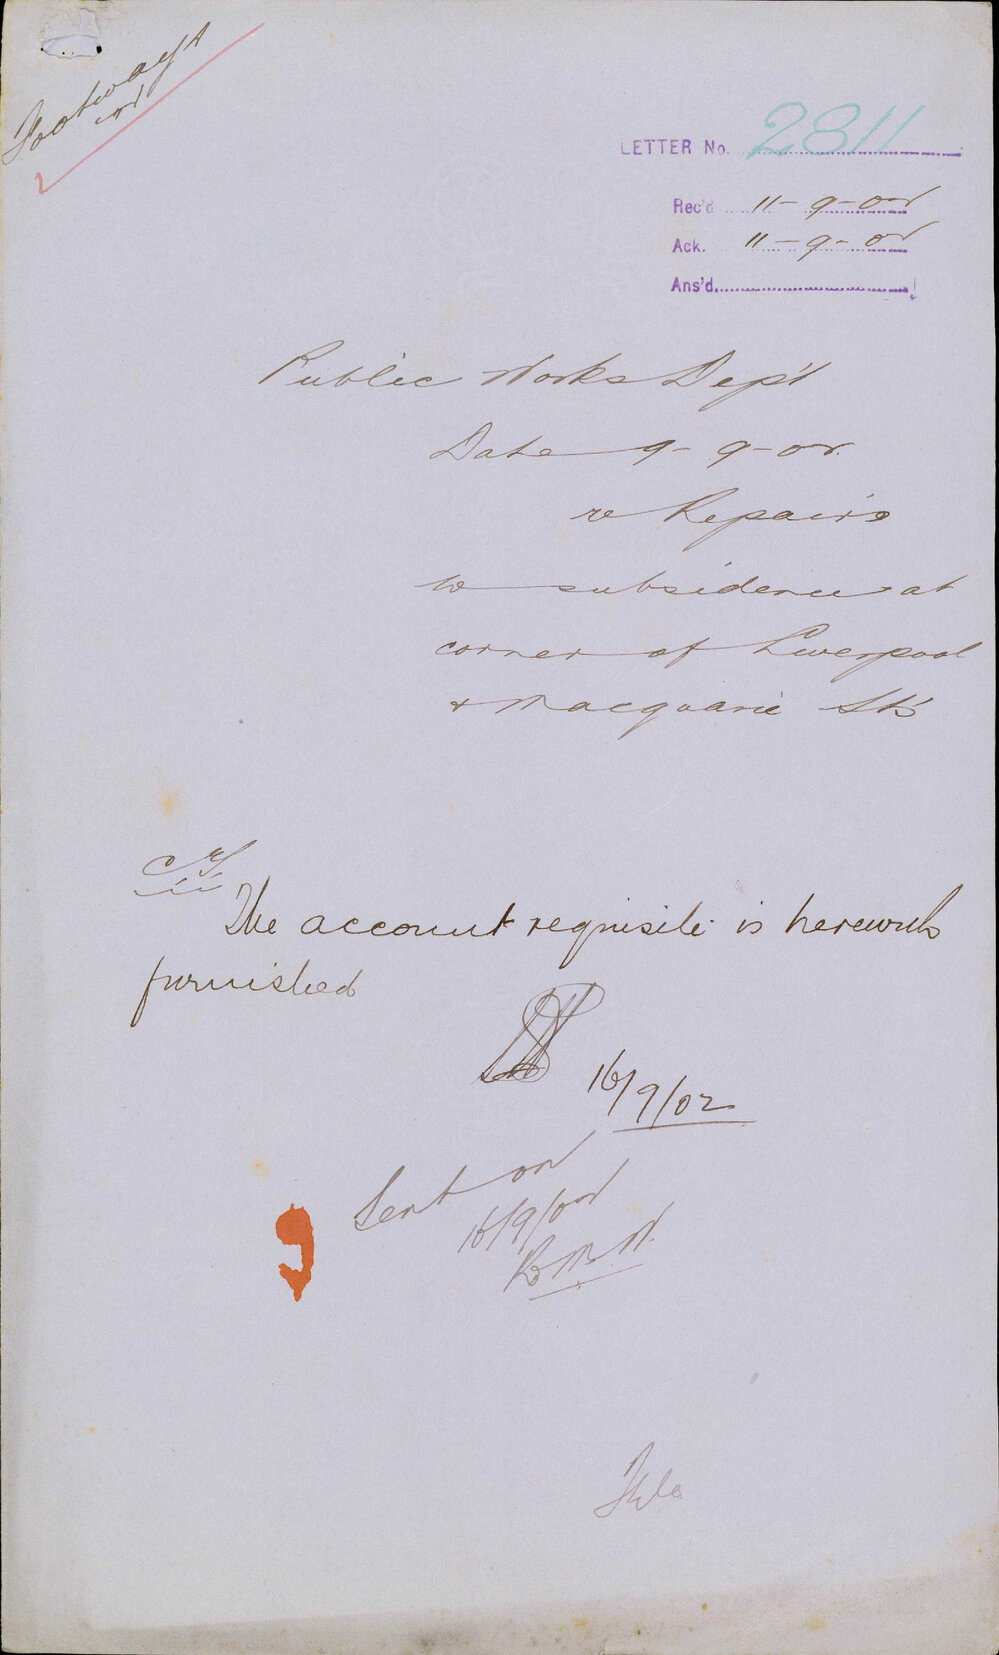 Footways
02
LETTER No. 2811
Rec'd 11-9-02
Ack. 11-9-02
Ans'd.
Public Works Dep't
Date 9-9-02.
re Repairs
to subsidence at
corner of Liverpool
& Macquarie Sts
The account requisite is herewith
furnished
16/9/02
Sent on
16/9/02
File